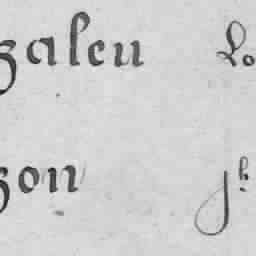 zaleu Lo
zon Jh